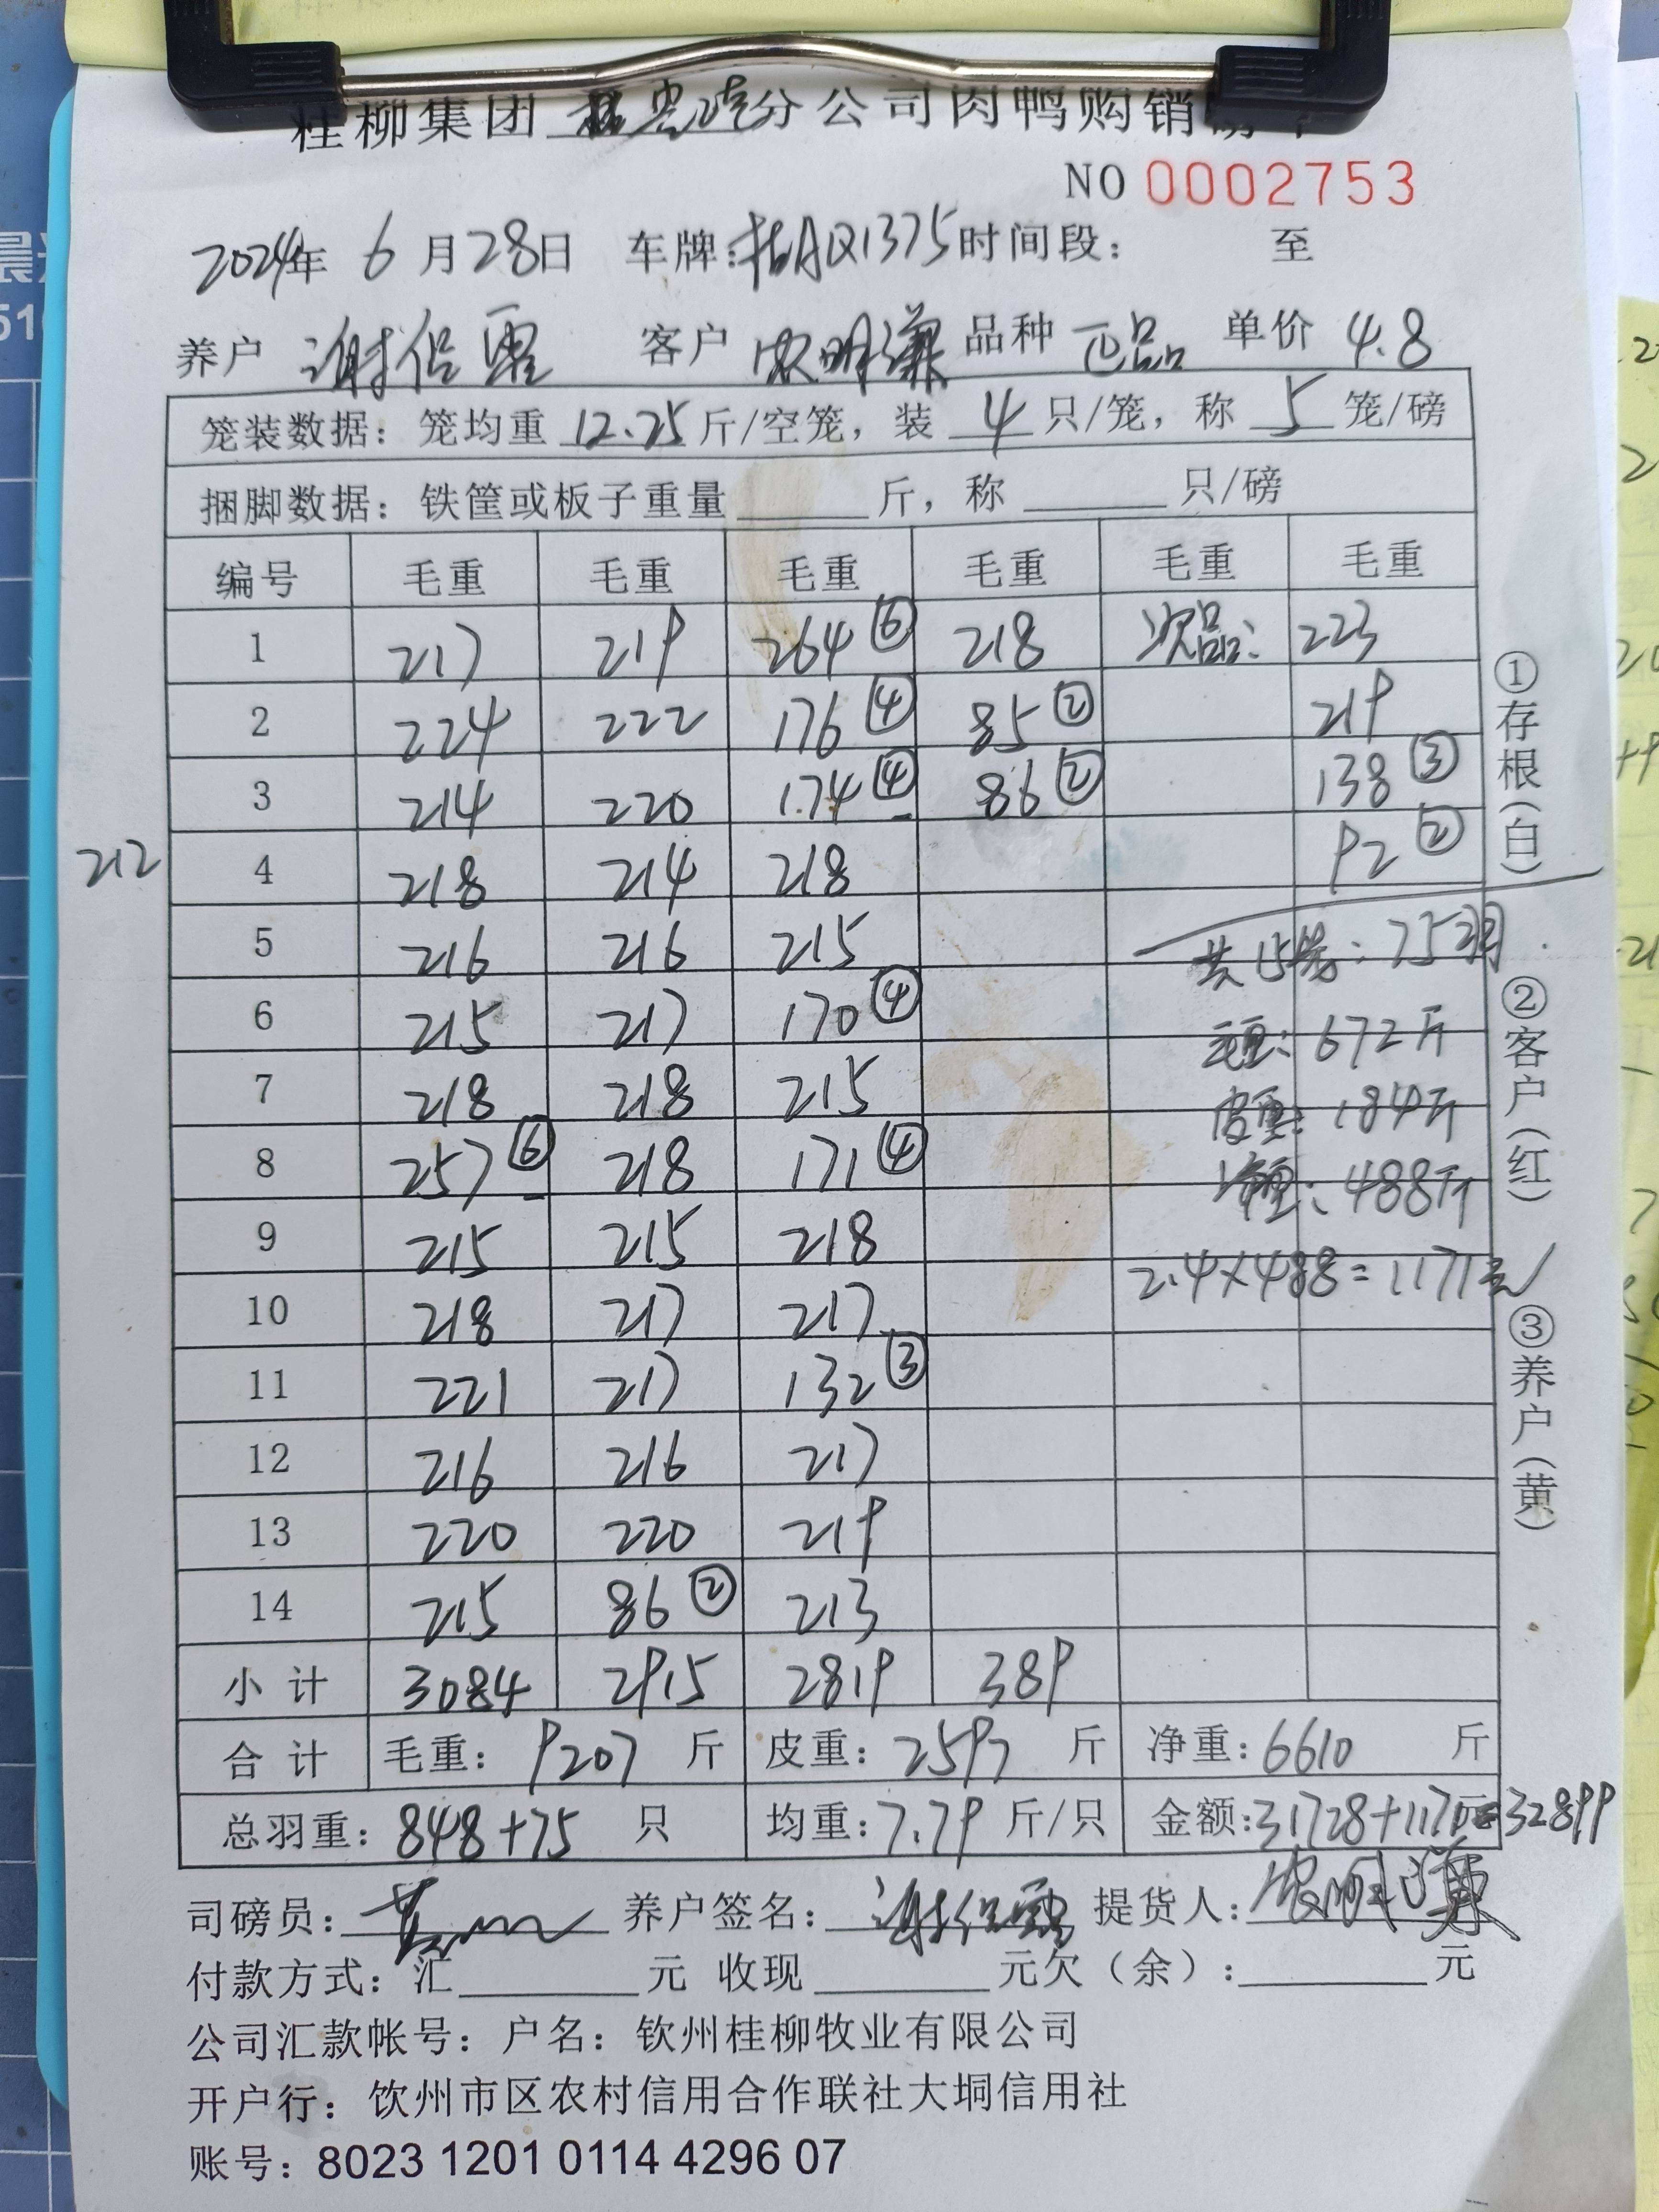 桂柳集团 分公司肉鸭购销
NO 0002753
2024年 6 月 28日 车牌:桂AQ1375 时间段: 至
养户 谢信 客户 农明谦 品种 正品 单价 4.8
笼装数据: 笼均重 12.25 斤/空笼, 装 4 只/笼, 称 5 笼/磅
捆脚数据: 铁筐或板子重量 斤, 称 只/磅
编号 毛重 毛重 毛重 毛重 毛重 毛重
1 217 219 264⑥ 218 次品: 223
2 224 222 176④ 85② 219
3 214 220 174④ 86② 138③
212 4 218 214 218 92②
5 216 216 215 共15笼: 75羽
6 215 217 170④ 毛重: 672斤
7 218 218 215 皮重: 184斤
8 257⑥ 218 171④ 净重: 488斤
9 215 215 218 2.4×488=1171元
10 218 217 217
11 221 217 132③
12 216 216 217
13 220 220 219
14 215 86② 213
小计 3084 2915 2819 389
合计 毛重: 9207 斤 皮重: 2597 斤 净重: 6610 斤
总羽重: 848+75 只 均重: 7.79 斤/只 金额: 31728+1171=32899
司磅员: 养户签名: 谢信 提货人: 农明谦
付款方式: 汇 元 收现 元欠(余): 元
公司汇款帐号: 户名: 钦州桂柳牧业有限公司
开户行: 钦州市区农村信用合作联社大垌信用社
账号: 8023 1201 0114 4296 07
①存根(白)
②客户(红)
③养户(黄)